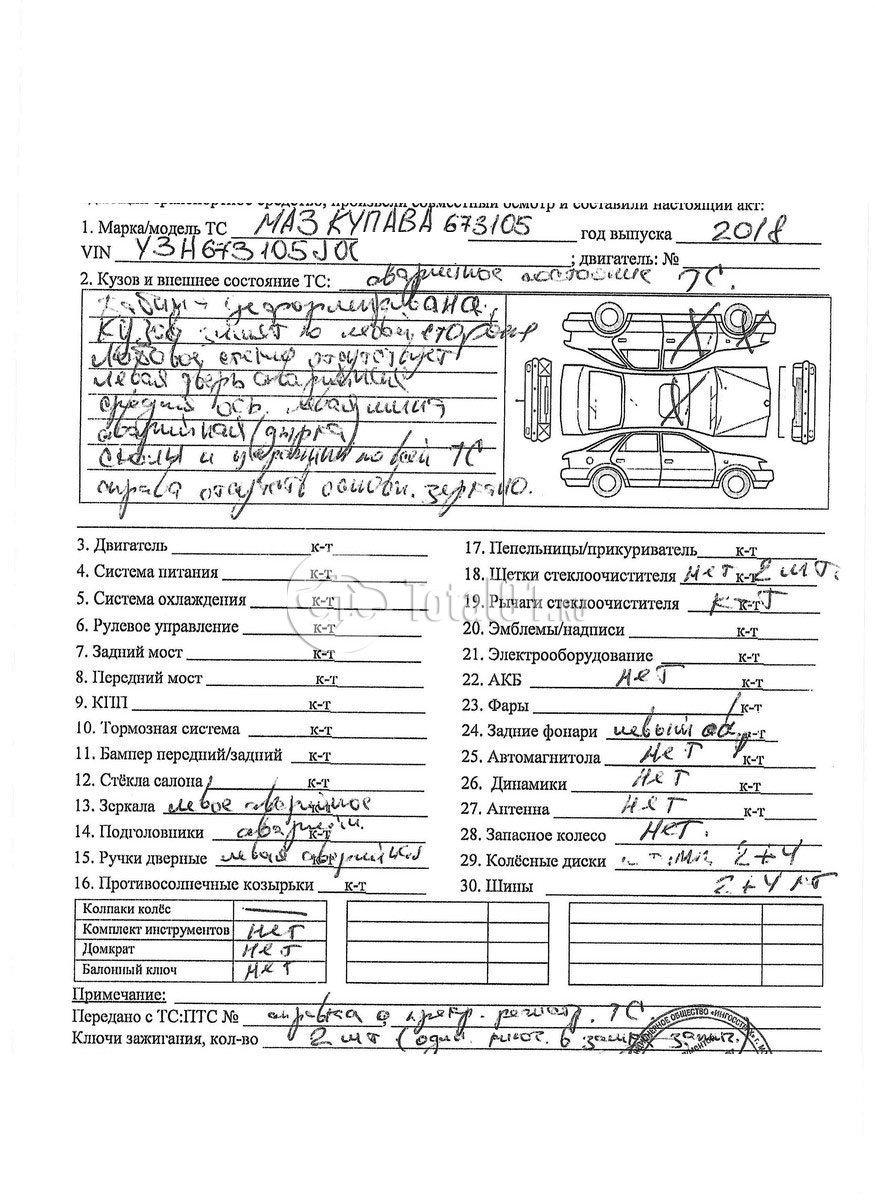 произвели совместный осмотр и составили настоящий акт:
1. Марка/модель ТС МАЗ КУПАВА 673105 год выпуска 2018
VIN У3Н673105JОС ; двигатель: №
2. Кузов и внешнее состояние ТС: аварийное состояние ТС.
Кабина деформирована,
КУЗОВ по левой стороне
Лобовое стекло отсутствует
левая дверь аварийная
средний ось. левая шина
аварийная (дырка)
Сколы и царапины по всей ТС
справа отсутств. основн. зеркало.
3. Двигатель к-т
4. Система питания к-т
5. Система охлаждения к-т
6. Рулевое управление к-т
7. Задний мост к-т
8. Передний мост к-т
9. КПП к-т
10. Тормозная система к-т
11. Бампер передний/задний к-т
12. Стёкла салона к-т
13. Зеркала левое аварийное к-т
14. Подголовники к-т
15. Ручки дверные левая к-т
16. Противосолнечные козырьки к-т
17. Пепельницы/прикуриватель к-т
18. Щетки стеклоочистителя нет к-т 2 шт.
19. Рычаги стеклоочистителя к-т
20. Эмблемы/надписи к-т
21. Электрооборудование к-т
22. АКБ нет к-т
23. Фары к-т
24. Задние фонари левый к-т
25. Автомагнитола нет к-т
26. Динамики нет к-т
27. Антенна нет к-т
28. Запасное колесо нет.
29. Колёсные диски 2+4
30. Шины 2+4
Колпаки колёс —
Комплект инструментов нет
Домкрат нет
Балонный ключ нет
Примечание:
Передано с ТС:ПТС № справка о прекр. регистр. ТС.
Ключи зажигания, кол-во 2 шт (один ключ. в замке зажиг.
ОБЩЕСТВО «ИНГОССТРАХ»
Total01.ru